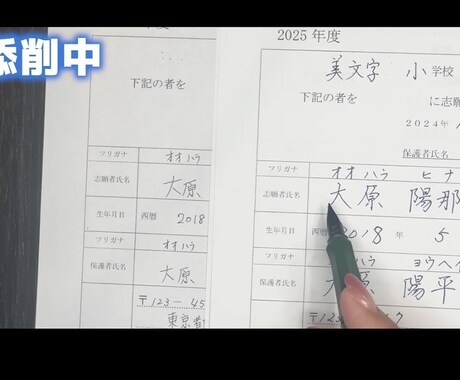 添削中
下記の者を
フリガナ オオハラ
志願者氏名 大原
生年月日 西暦 2018
フリガナ オオハラ
保護者氏名 大原
〒123-45
東京都
2025年度
美文字 小学校
下記の者を に志願
2024年
保護者氏名
フリガナ オオハラ ヒナ
志願者氏名 大原 陽那
生年月日 西暦 2018 年 5
フリガナ ハラ ヨウヘイ
保護者氏名 大原 陽平
〒123